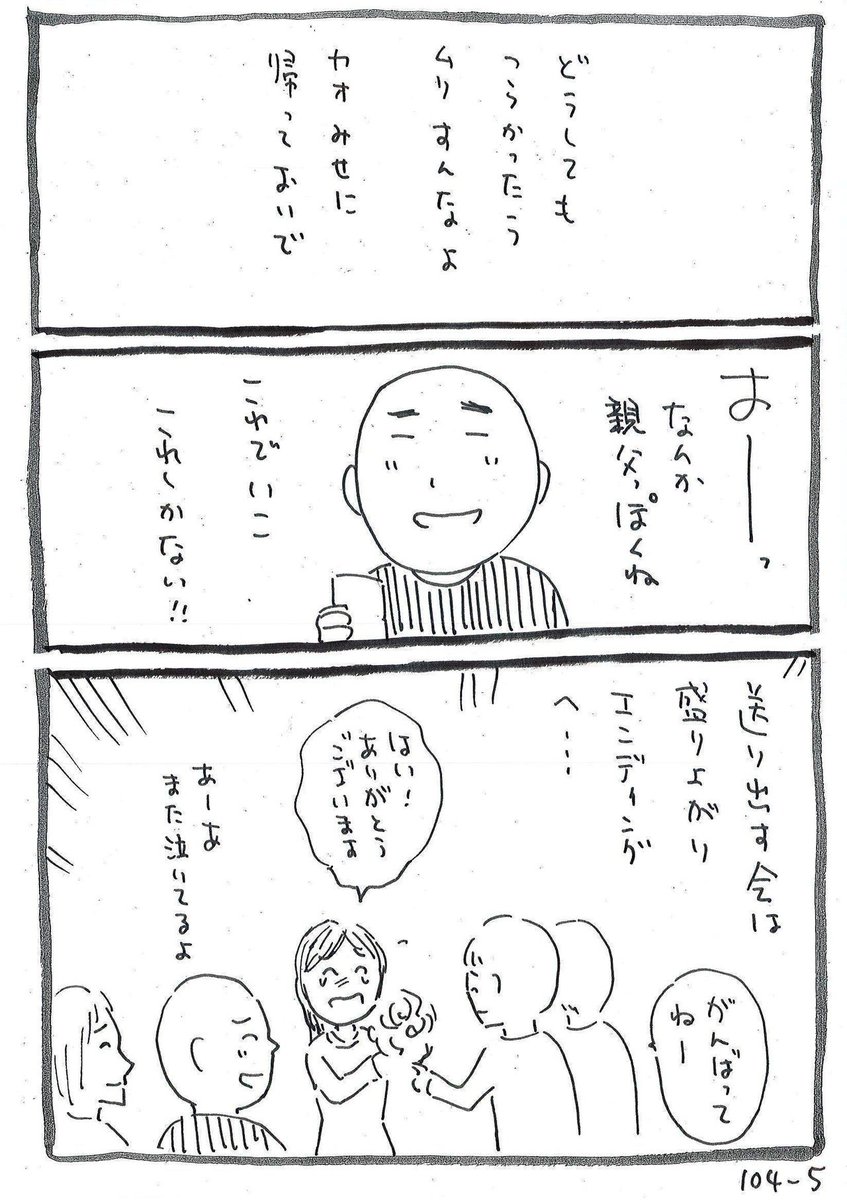 どうしても
つらかったら
ムリすんなよ
カオみせに
帰っておいで
おーーっ
なんか
親父っぽくね
これでいこ
これしかない!!
送り出す会は
盛り上がり
エンディング
へ…
がんばって
ねー
はい!
ありがとう
ございます
あーあ
また泣いてるよ
104-5